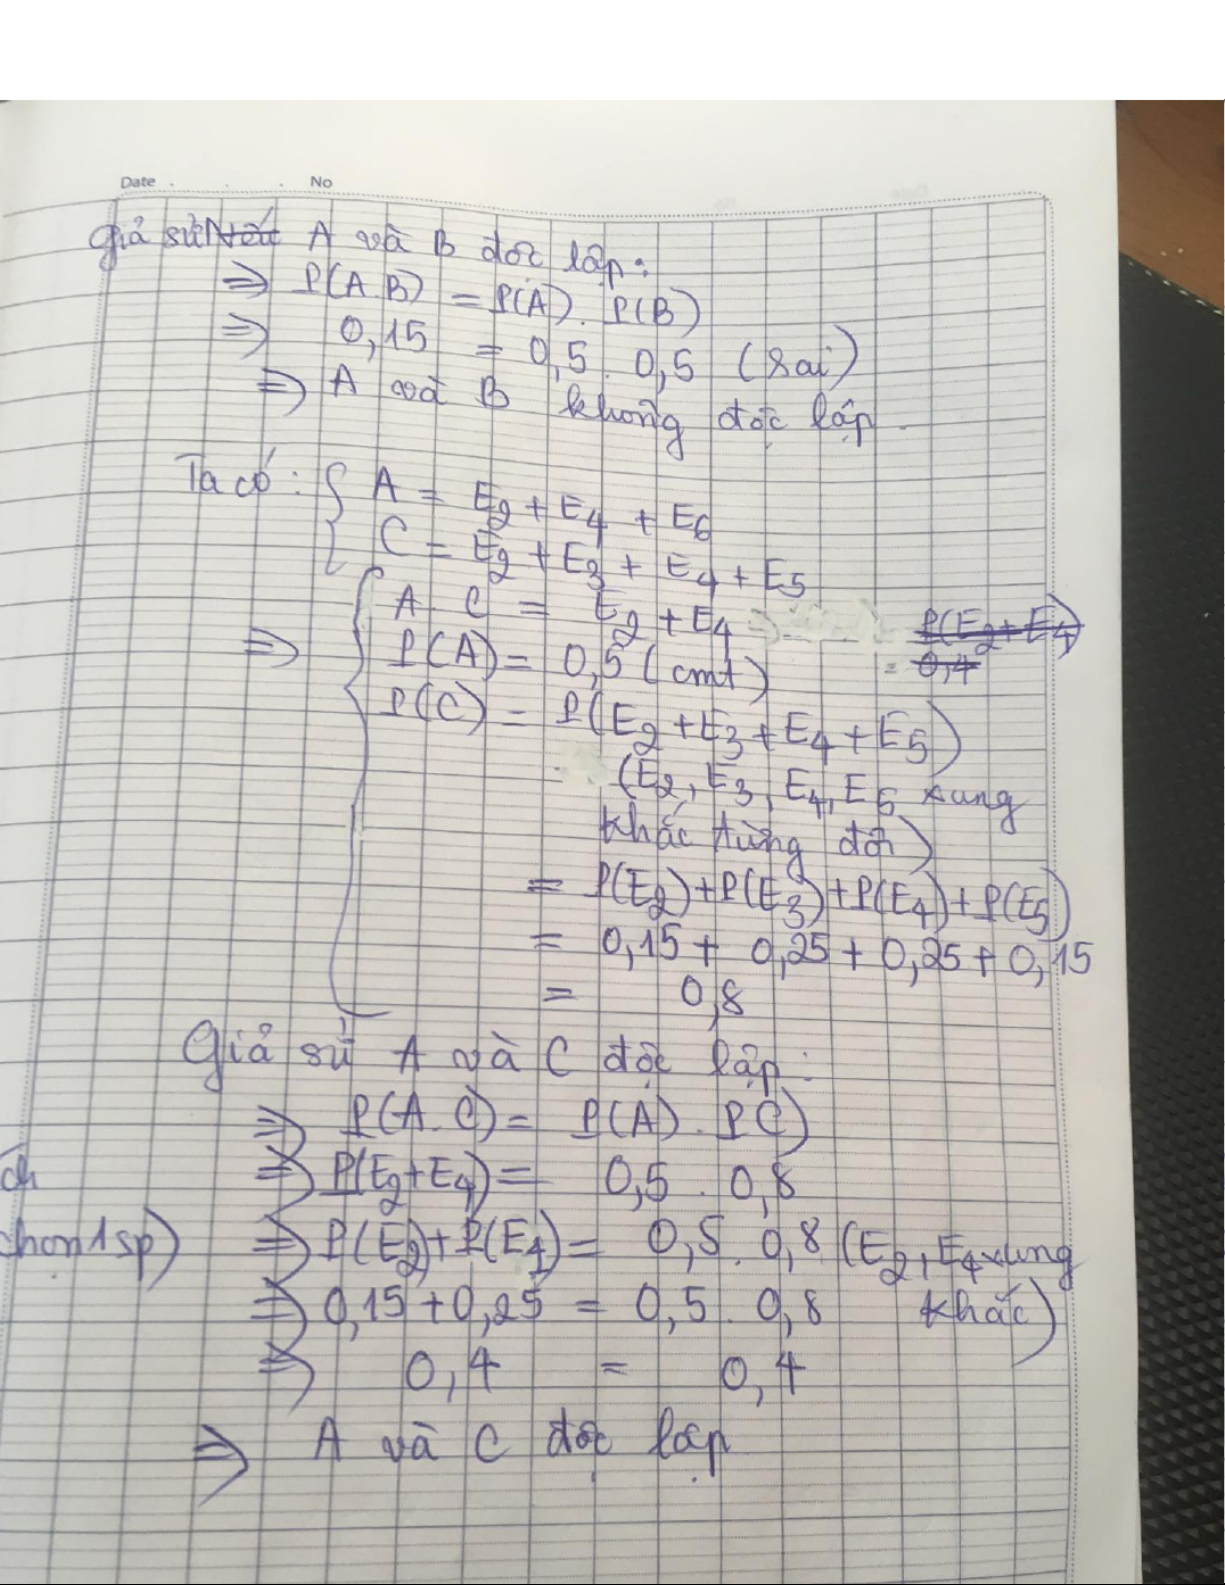 Date No
Giả sử A và B độc lập:
⇒ P(A.B) = P(A). P(B)
⇒ 0,15 = 0,5 . 0,5 (sai)
⇒ A và B không độc lập
Ta có: { A = E2 + E4 + E6
C = E2 + E3 + E4 + E5
A . C = E2 + E4 P(E2+E4)
⇒ P(A) = 0,5 (cmt) = 0,4
P(C) = P(E2 + E3 + E4 + E5)
(E2, E3, E4, E5 xung
khắc từng đôi)
= P(E2)+P(E3)+P(E4)+P(E5)
= 0,15 + 0,25 + 0,25 + 0,15
= 0,8
Giả sử A và C độc lập:
⇒ P(A.C) = P(A). P(C)
⇒ P(E2+E4) = 0,5 . 0,8
chọn 1 sp) ⇒ P(E2)+P(E4) = 0,5 . 0,8 (E2, E4 xung
⇒ 0,15+0,25 = 0,5 . 0,8 khắc)
⇒ 0,4 = 0,4
⇒ A và C độc lập